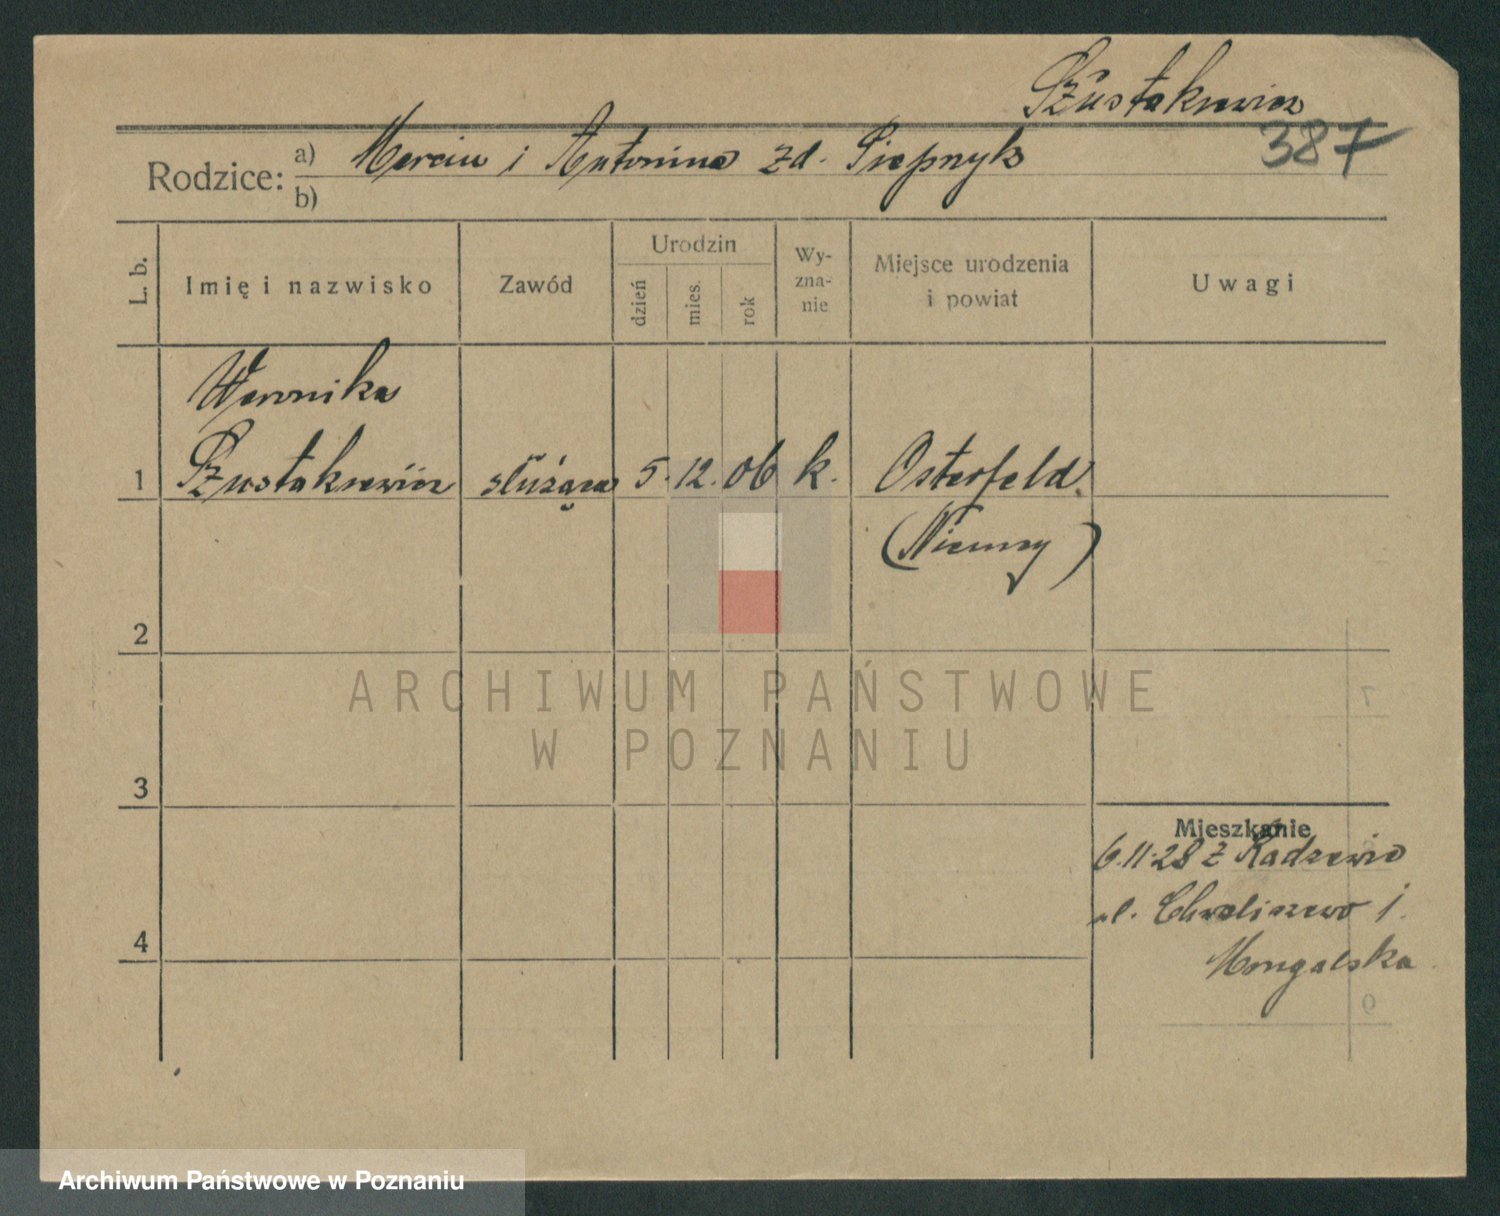 Szustakiewicz
387
Rodzice: a) Marcin i Antonina zd. Piepnyk
b)
L. b.
Imię i nazwisko
Zawód
Urodzin
dzień
mies.
rok
Wy-
zna-
nie
Miejsce urodzenia
i powiat
Uwagi
Weronika
1 Szustakiewicz służąca 5. 12. 06 k. Osterfeld
(Niemcy)
2
3
4
Mieszkanie
6.11.28 z Radzewic
ul. Chwaliszewo 1.
ARCHIWUM PAŃSTWOWE
W POZNANIU
Archiwum Państwowe w Poznaniu